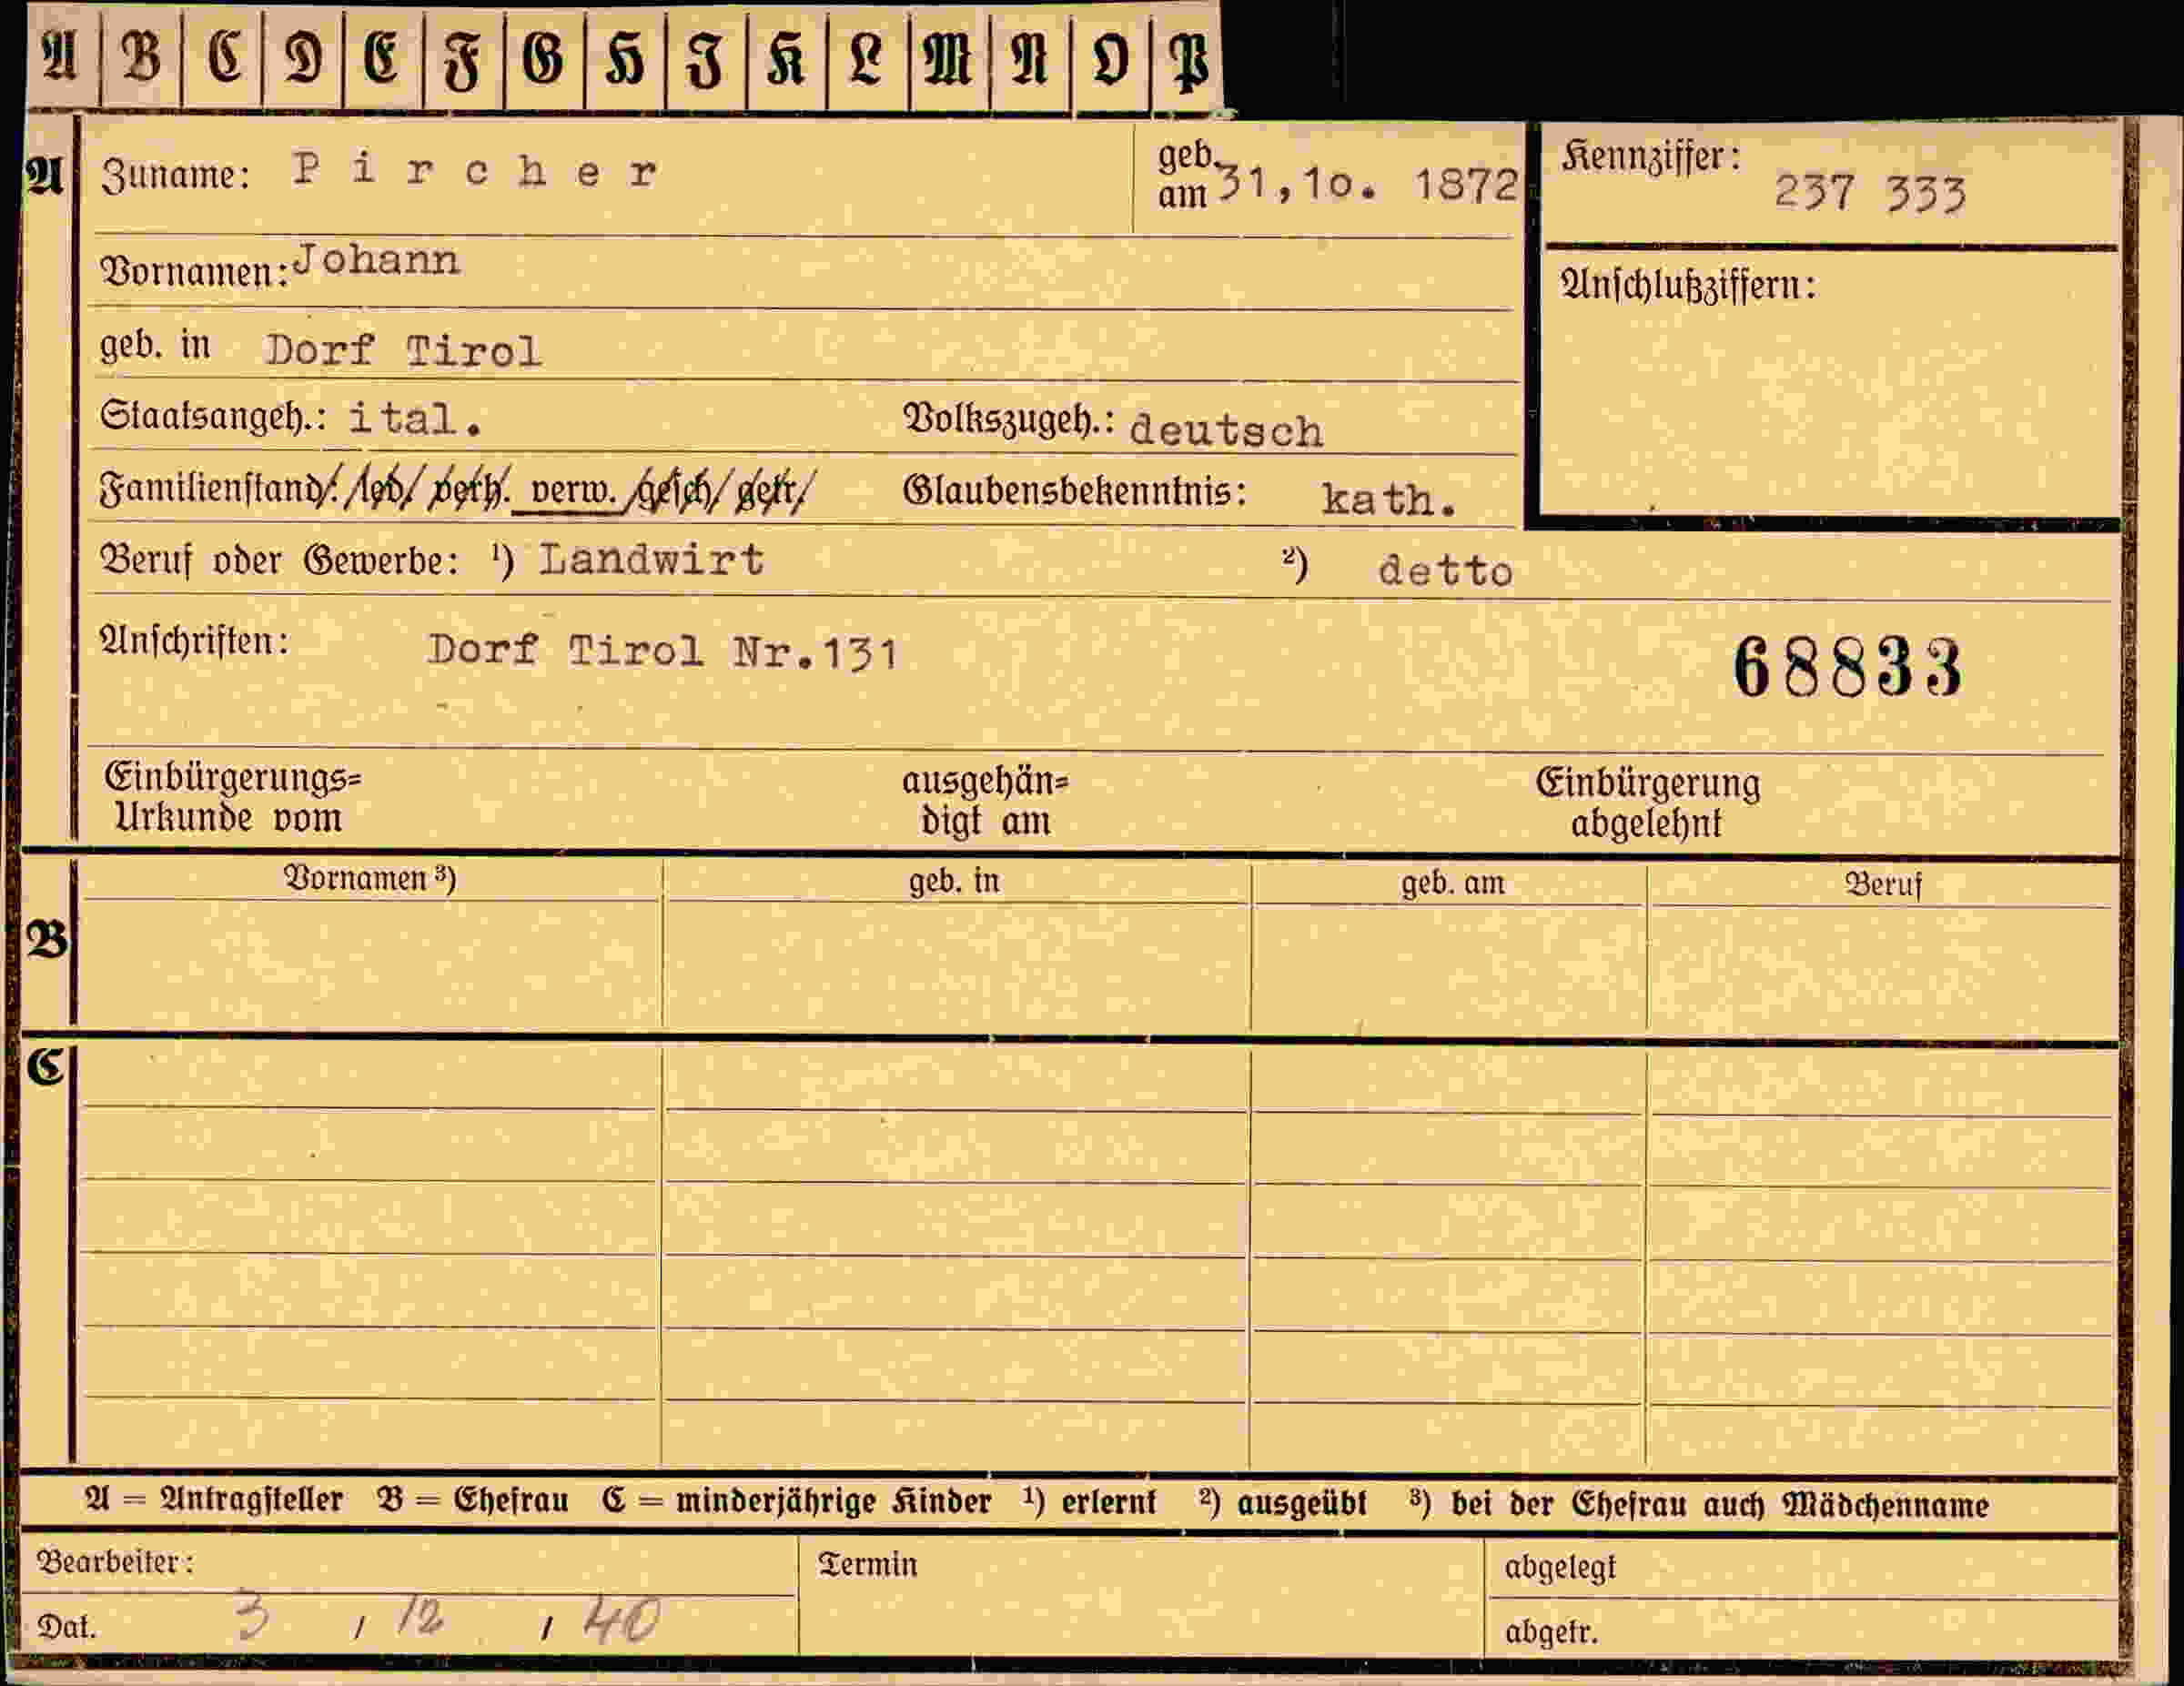 A B C D E F G H I K L M N O P
A Zuname: Pircher geb. am 31,10. 1872 Kennziffer: 237 333
Vornamen: Johann Anschlußziffern:
geb. in Dorf Tirol
Staatsangeh.: ital. Volkszugeh.: deutsch
Familienstand: led. verh. verw. gesch. getr. Glaubensbekenntnis: kath.
Beruf oder Gewerbe: ¹) Landwirt ²) detto
Anschriften: Dorf Tirol Nr.131 68833
Einbürgerungs= ausgehän= Einbürgerung
Urkunde vom digt am abgelehnt
Vornamen ³) geb. in geb. am Beruf
B
C
A = Antragsteller B = Ehefrau C = minderjährige Kinder ¹) erlernt ²) ausgeübt ³) bei der Ehefrau auch Mädchenname
Bearbeiter: Termin abgelegt
Dat. 3 / 12 / 40 abgetr.